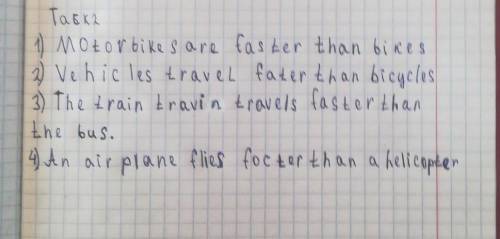 Task2
1) Motorbikes are faster than bikes
2) Vehicles travel fater than bicycles
3) The train travin travels faster than
the bus.
4) An air plane flies focter than a helicopter